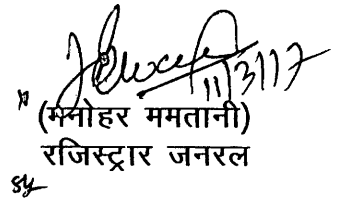 11/3/17
(मनोहर ममतानी)
रजिस्ट्रार जनरल